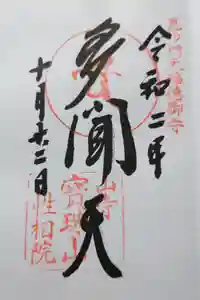 令和二年
多聞天
十月十二日
山寺
寳珠山
性相院